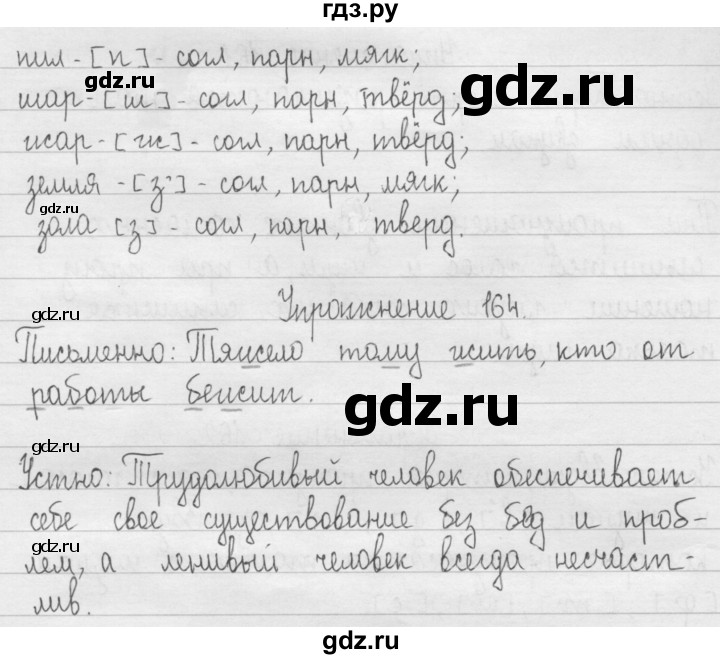 гдз.ру
пил - [п] - согл, парн, мягк;
шар - [ш] - согл, парн, твёрд;
жар - [ж] - согл, парн, твёрд;
земля - [з'] - согл, парн, мягк;
зола [з] - согл, парн, тверд.
Упражнение 164.
Письменно: Тяжело тому жить, кто от
работы бежит.
Устно: Трудолюбивый человек обеспечивает
себе свое существование без бед и проб-
лем, а ленивый человек всегда несчаст-
лив.
gdz.ru
gdz.ru
gdz.ru
gdz.ru
gdz.ru
gdz.ru
gdz.ru
gdz.ru
gdz.ru